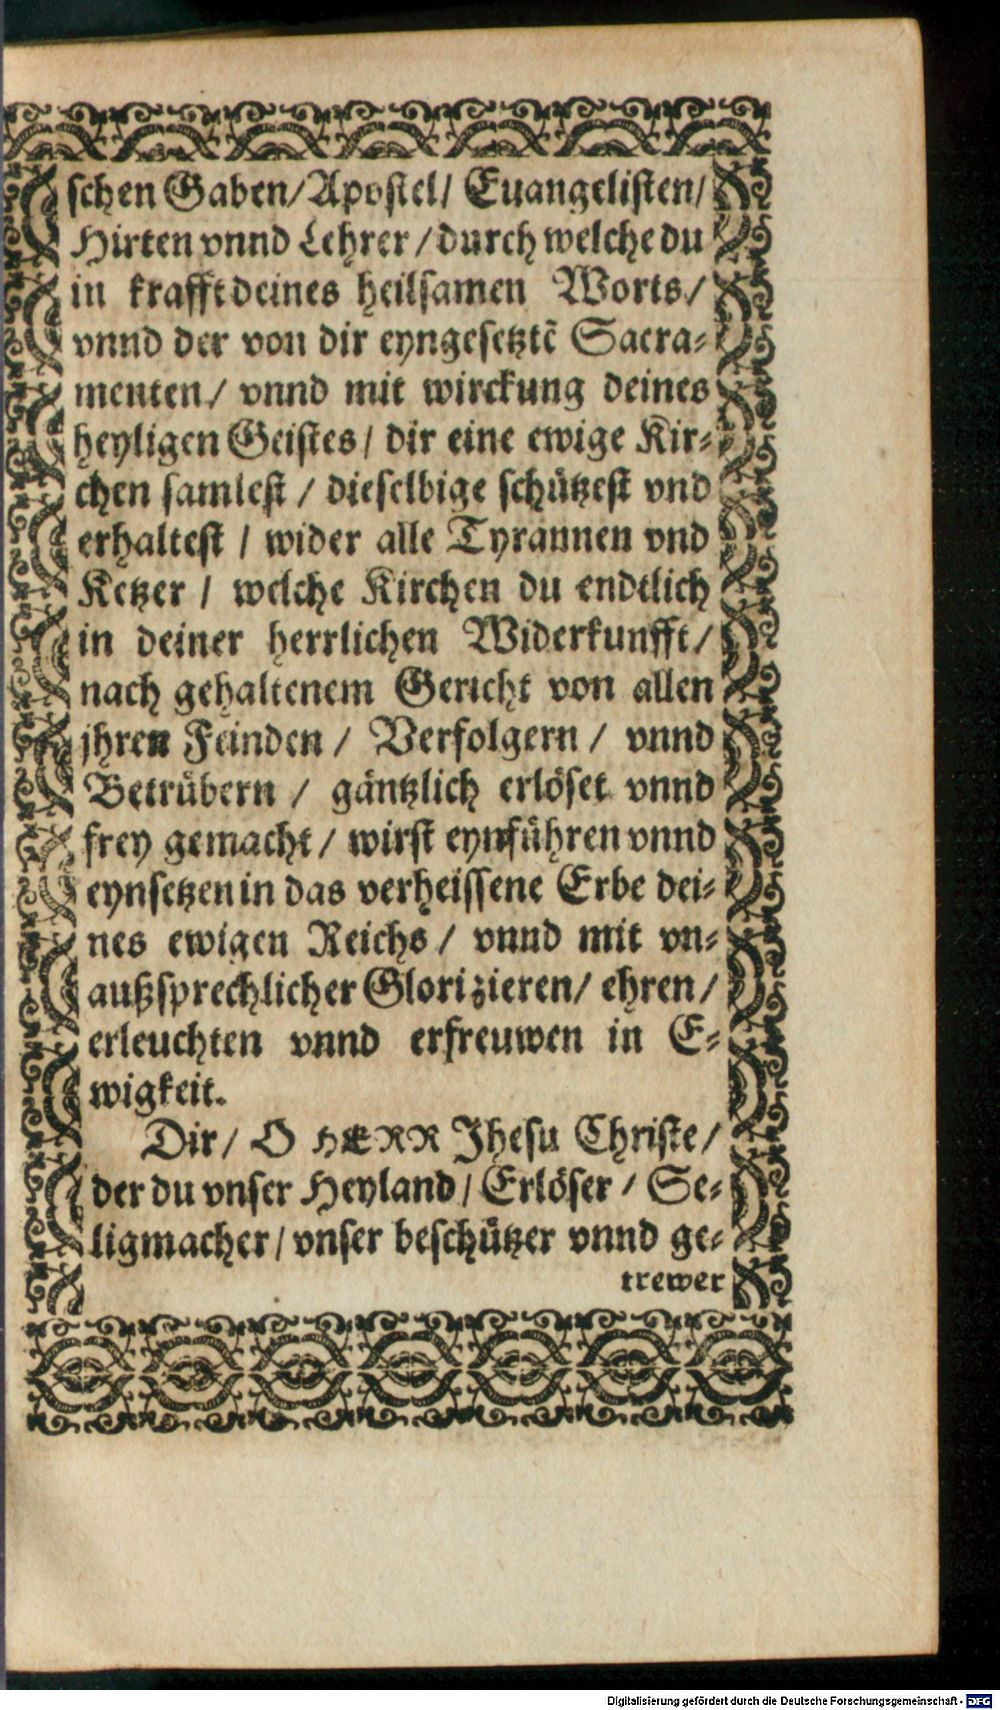 schen Gaben/Apostel/ Euangelisten/
Hirten vnnd Lehrer /durch welche du
in krafft deines heilsamen Worts/
vnnd der von dir eyngesetztē Sacra-
menten/ vnnd mit wirckung deines
heyligen Geistes/ dir eine ewige Kir-
chen samlest / dieselbige schützest vnd
erhaltest / wider alle Tyrannen vnd
Ketzer / welche Kirchen du endtlich
in deiner herrlichen Widerkunfft/
nach gehaltenem Gericht von allen
jhren Feinden / Verfolgern / vnnd
Betrübern / gäntzlich erlöset vnnd
frey gemacht/ wirst eynführen vnnd
eynsetzen in das verheissene Erbe dei-
nes ewigen Reichs / vnnd mit vn-
außsprechlicher Glori zieren/ ehren/
erleuchten vnnd erfreuwen in E-
wigkeit.
Dir/ O HERR Jhesu Christe/
der du vnser Heyland/ Erlöser / Se-
ligmacher/ vnser beschützer vnnd ge-
trewer
Digitalisierung gefördert durch die Deutsche Forschungsgemeinschaft - DFG